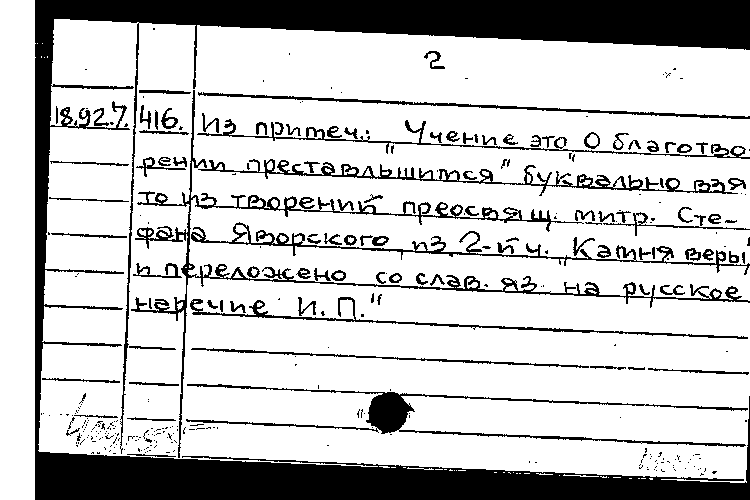 2
18.92.7. 416. Из примеч.: „Учение это „О благотво-
рении преставльшимся" буквально взя
то из творений преосвящ. митр. Сте-
фана Яворского, из 2-й ч. „Камня веры"
и переложено со слав. яз. на русское
наречие И. П."